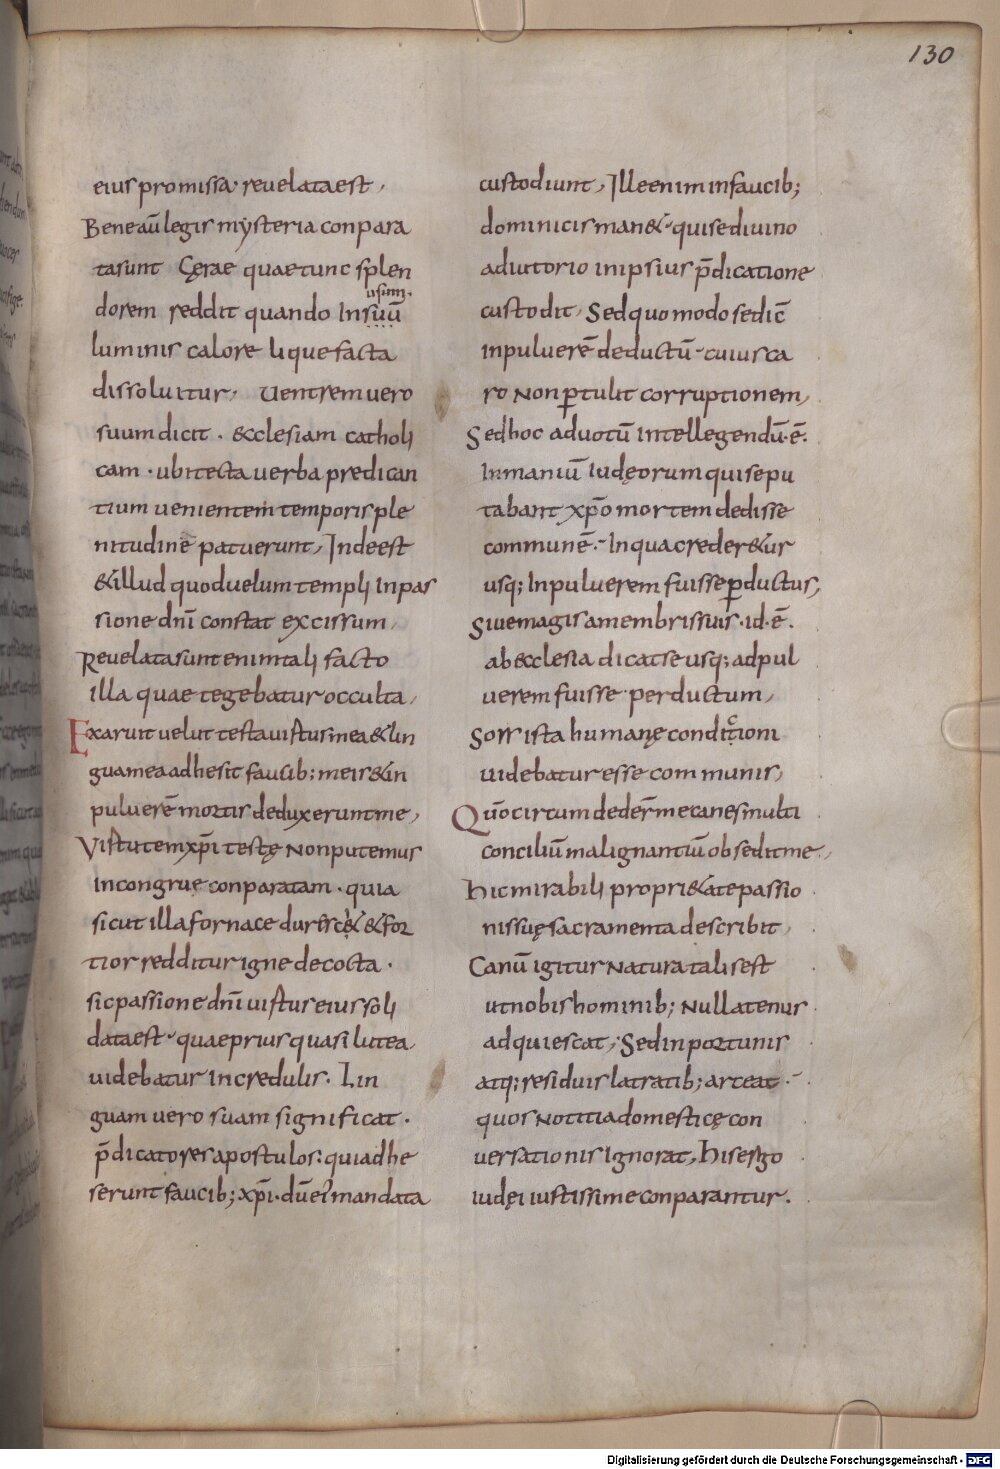 130
eius promissa· reuelata est,
Bene aū legis mysteria conpara
tasunt Cęrae quae tunc splen
usum·
dorem reddit quando In suū
luminis calore liquefacta
dissoluitur, Uentrem uero
suum dicit· &cclesiam catholi
cam· ubi tecta uerba predican
tium uenientem temporis ple
nitudinē patuerunt, Inde est
& illud quod uelum templi In pas
sione dnī constat excissum,
Reuelata sunt enim tali facto
illa quae tegebatur occulta,
Exaruit uelut testa uirtus mea & lin
gua mea adhesit faucib: meis & in
puluerē mortis deduxerunt me,
Virtutem xp̄i testę non putemus
incongrue conparatam· quia
sicut illa fornace duresc& & for
tior redditur igne decocta·
sic passione dnī uirtus eius soli
data est· quae prius quasi lutea
uidebatur incredulis. Lin
guam uero suam significat·
p̄dicatores apostulos: qui adhe
serunt faucib; xp̄i· dū ei mandata
custodiunt, Ille enim in faucib;
dominicis man&· qui se diuino
adiutorio in ipsius p̄dicatione
custodit, Sed quomodo se dic̄
in puluerē deductū· cuius ca
ro non ꝑtulit corruptionem,
Sed hoc ad uotū Intellegendū·ē·
Inmaniū Iudęorum qui se pu
tabant xp̄o mortem dedisse
communē· In qua creder&ur
usq; In puluerem fuisse ꝑductus,
Siue magis a membris suis· id·ē·
ab ecclesia dicat se usq; ad pul
uerem fuisse perductum,
Sors ista humanę conditioni
uidebatur esse communis,
Quō circumdeder̄ me canes multi
conciliū malignantiū obsedit me,
Hic mirabili propri&ate passio
nis suę sacramenta describit,
Canū igitur natura talis est
ut nobis hominib; nullatenus
adquiescat, Sed inportunis
atq; residuis latratib; arceat·
quos notitia domesticę con
uersationis ignorat, His ergo
iudęi iustissime conparantur.
Digitalisierung gefördert durch die Deutsche Forschungsgemeinschaft - DFG